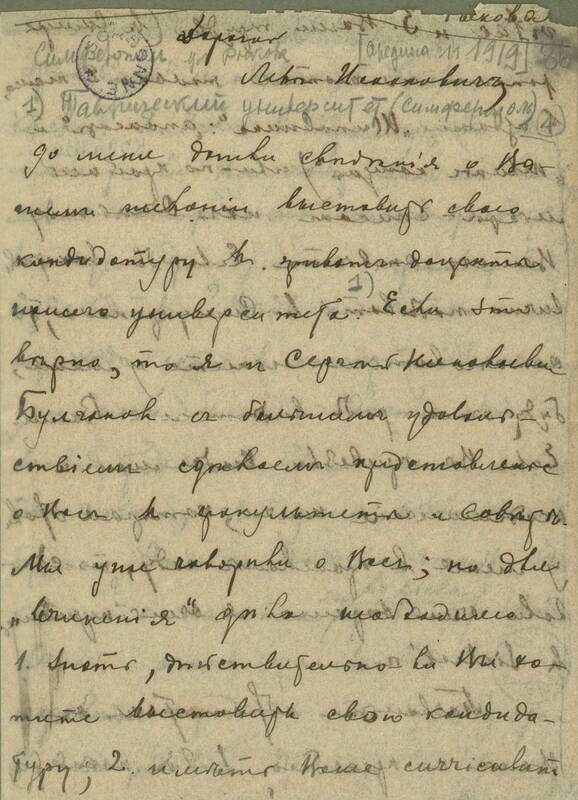 Гаскова
Симферополь у Рыкова [середина III 1919]
Дорогой
Левъ Исааковичъ,
1) Таврический университет (Симферополь)
до меня дошли свѣдѣнiя о Ва-
шемъ желанiи выставить свою
кандидатуру въ приватъ-доценты
нашего университета. 1) Если это
вѣрно, то я и Сергѣй Николаевичъ
Булгаковъ съ большимъ удоволь-
ствiемъ сдѣлаемъ представленiе
о Васъ въ факультетъ и совѣтъ.
Мы уже говорили о Васъ; но для
„ дѣла необходимо
1. знать, дѣйствительно ли Вы хо-
тите выставить свою кандида-
туру; 2. имѣть Ваше curriculum